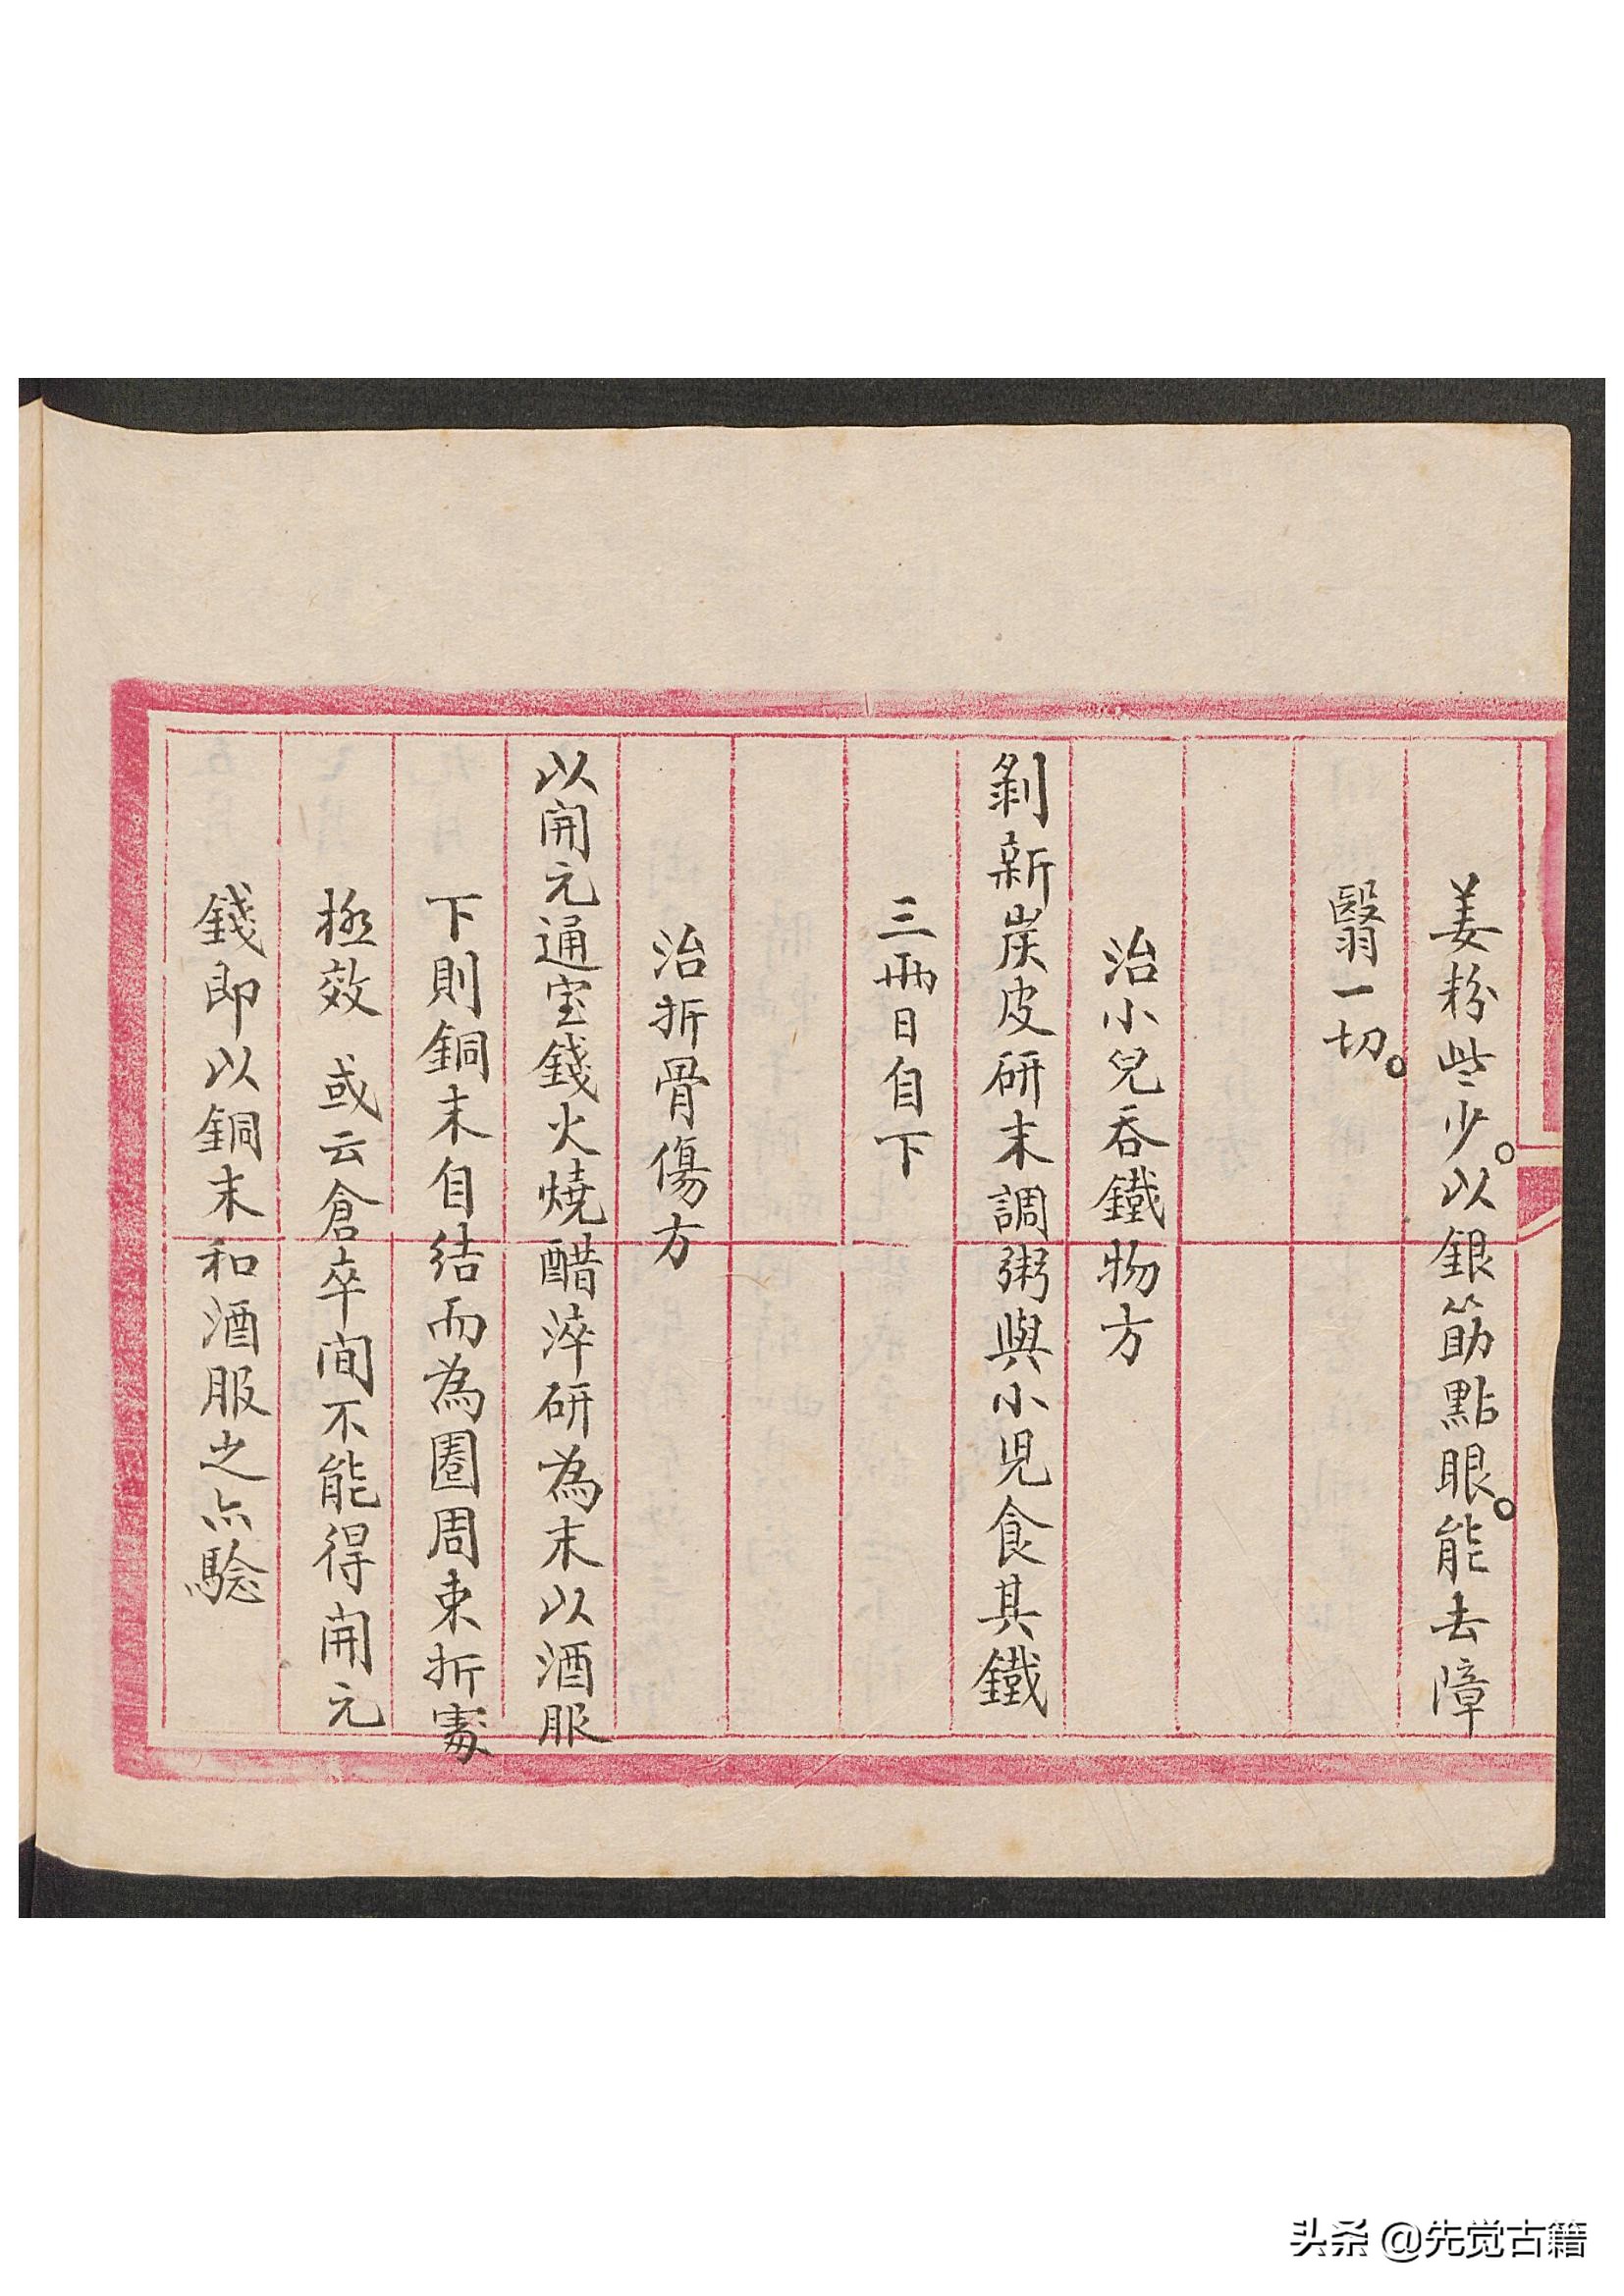 姜粉些少。以銀筯點眼。能去障
翳一切。
治小兒吞鐵物方
剝新炭皮研末調粥與小児食其鐵
三兩日自下
治折骨傷方
以開元通宝錢火燒醋淬研為末以酒服
下則銅末自结而為圈周束折䖏
極效 或云倉卒间不能得開元
錢即以銅末和酒服之亦騐
头条 @先觉古籍